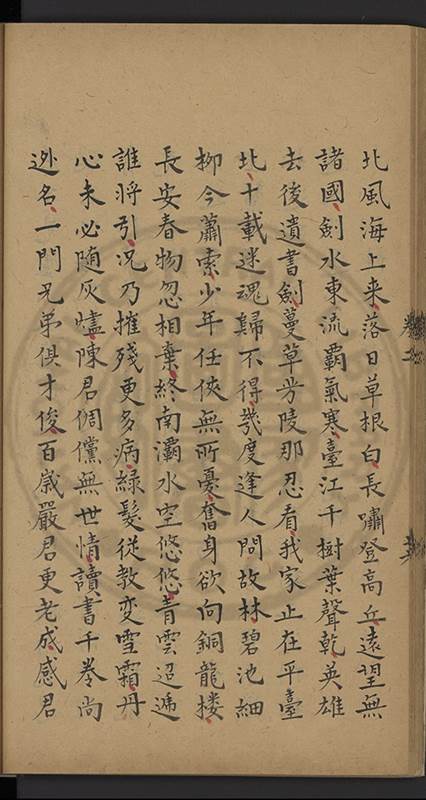 北風海上来落日草根白長嘯登高丘遠望無
諸國劍水東流覇氣寒臺江千樹葉聲乾英雄
去後遺書劍蔓草芳陵那忍看我家止在平臺
北十載迷魂歸不得幾度逢人問故林碧池細
柳今蕭索少年任俠無所憂奮身欲向銅龍樓
長安春物忽相棄終南灞水空悠悠青雲迢遞
誰將引况乃摧殘更多病緑髮從教変雪霜丹
心未必随灰燼陳君倜儻無世情讀書千卷尚
逃名一門兄弟俱才俊百歳嚴君更老成感君